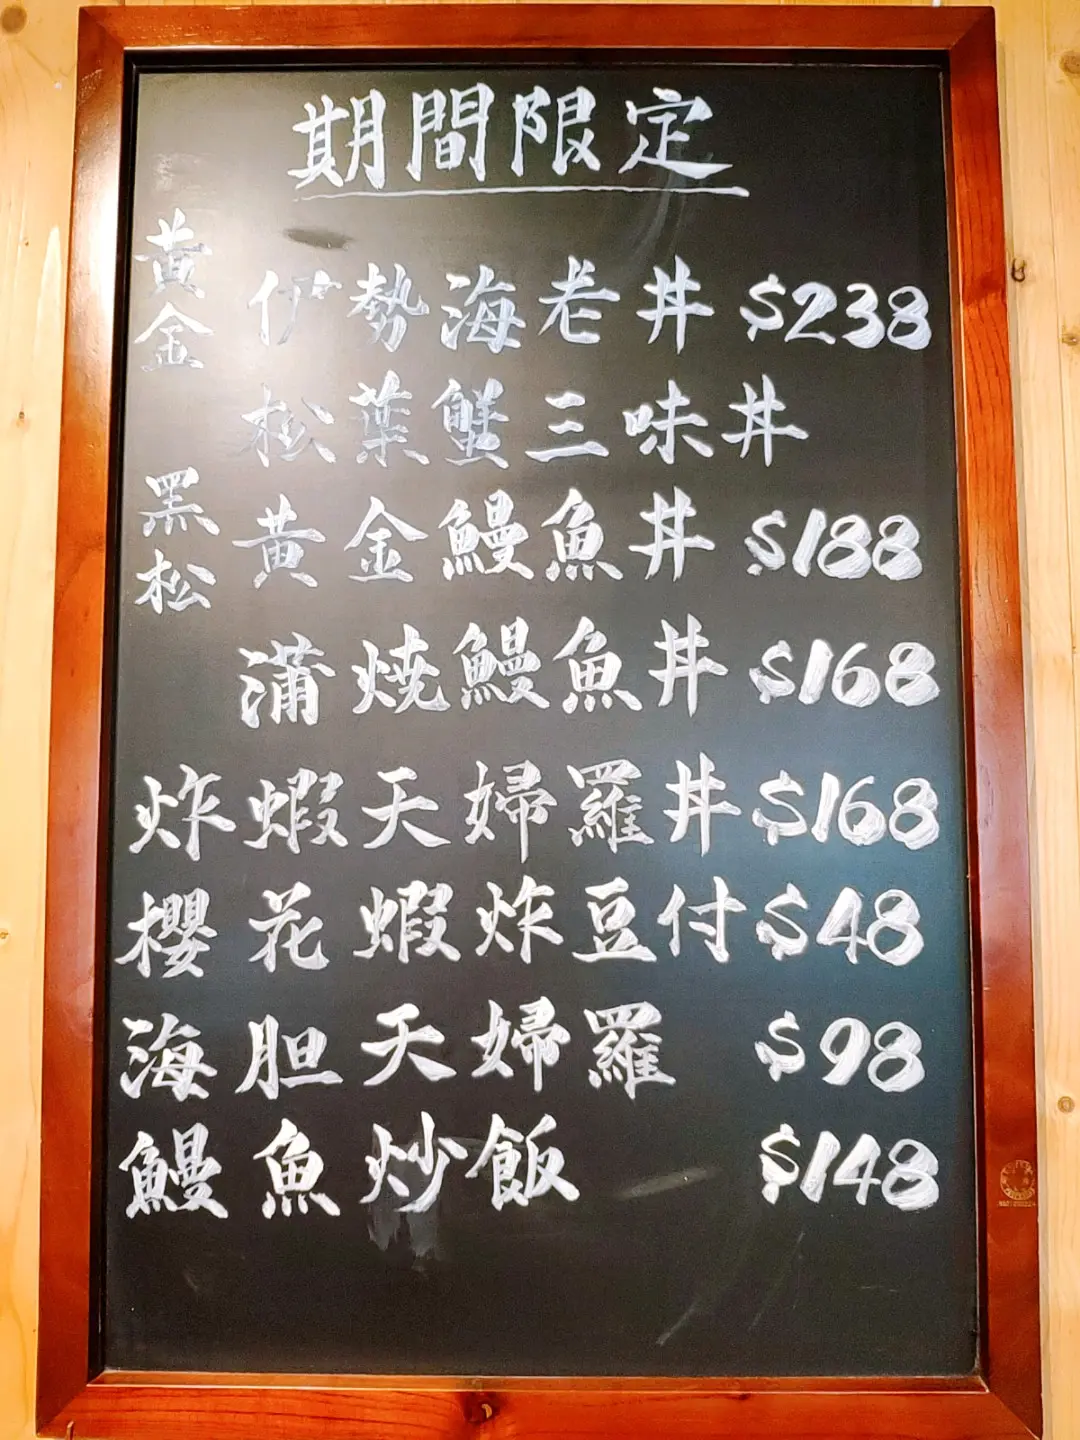 期間限定
黃金 伊勢海老丼 $238
松葉蟹三味丼
黑松 黃金鰻魚丼 $188
蒲燒鰻魚丼 $168
炸蝦天婦羅丼 $168
櫻花蝦炸豆付 $48
海胆天婦羅 $98
鰻魚炒飯 $148